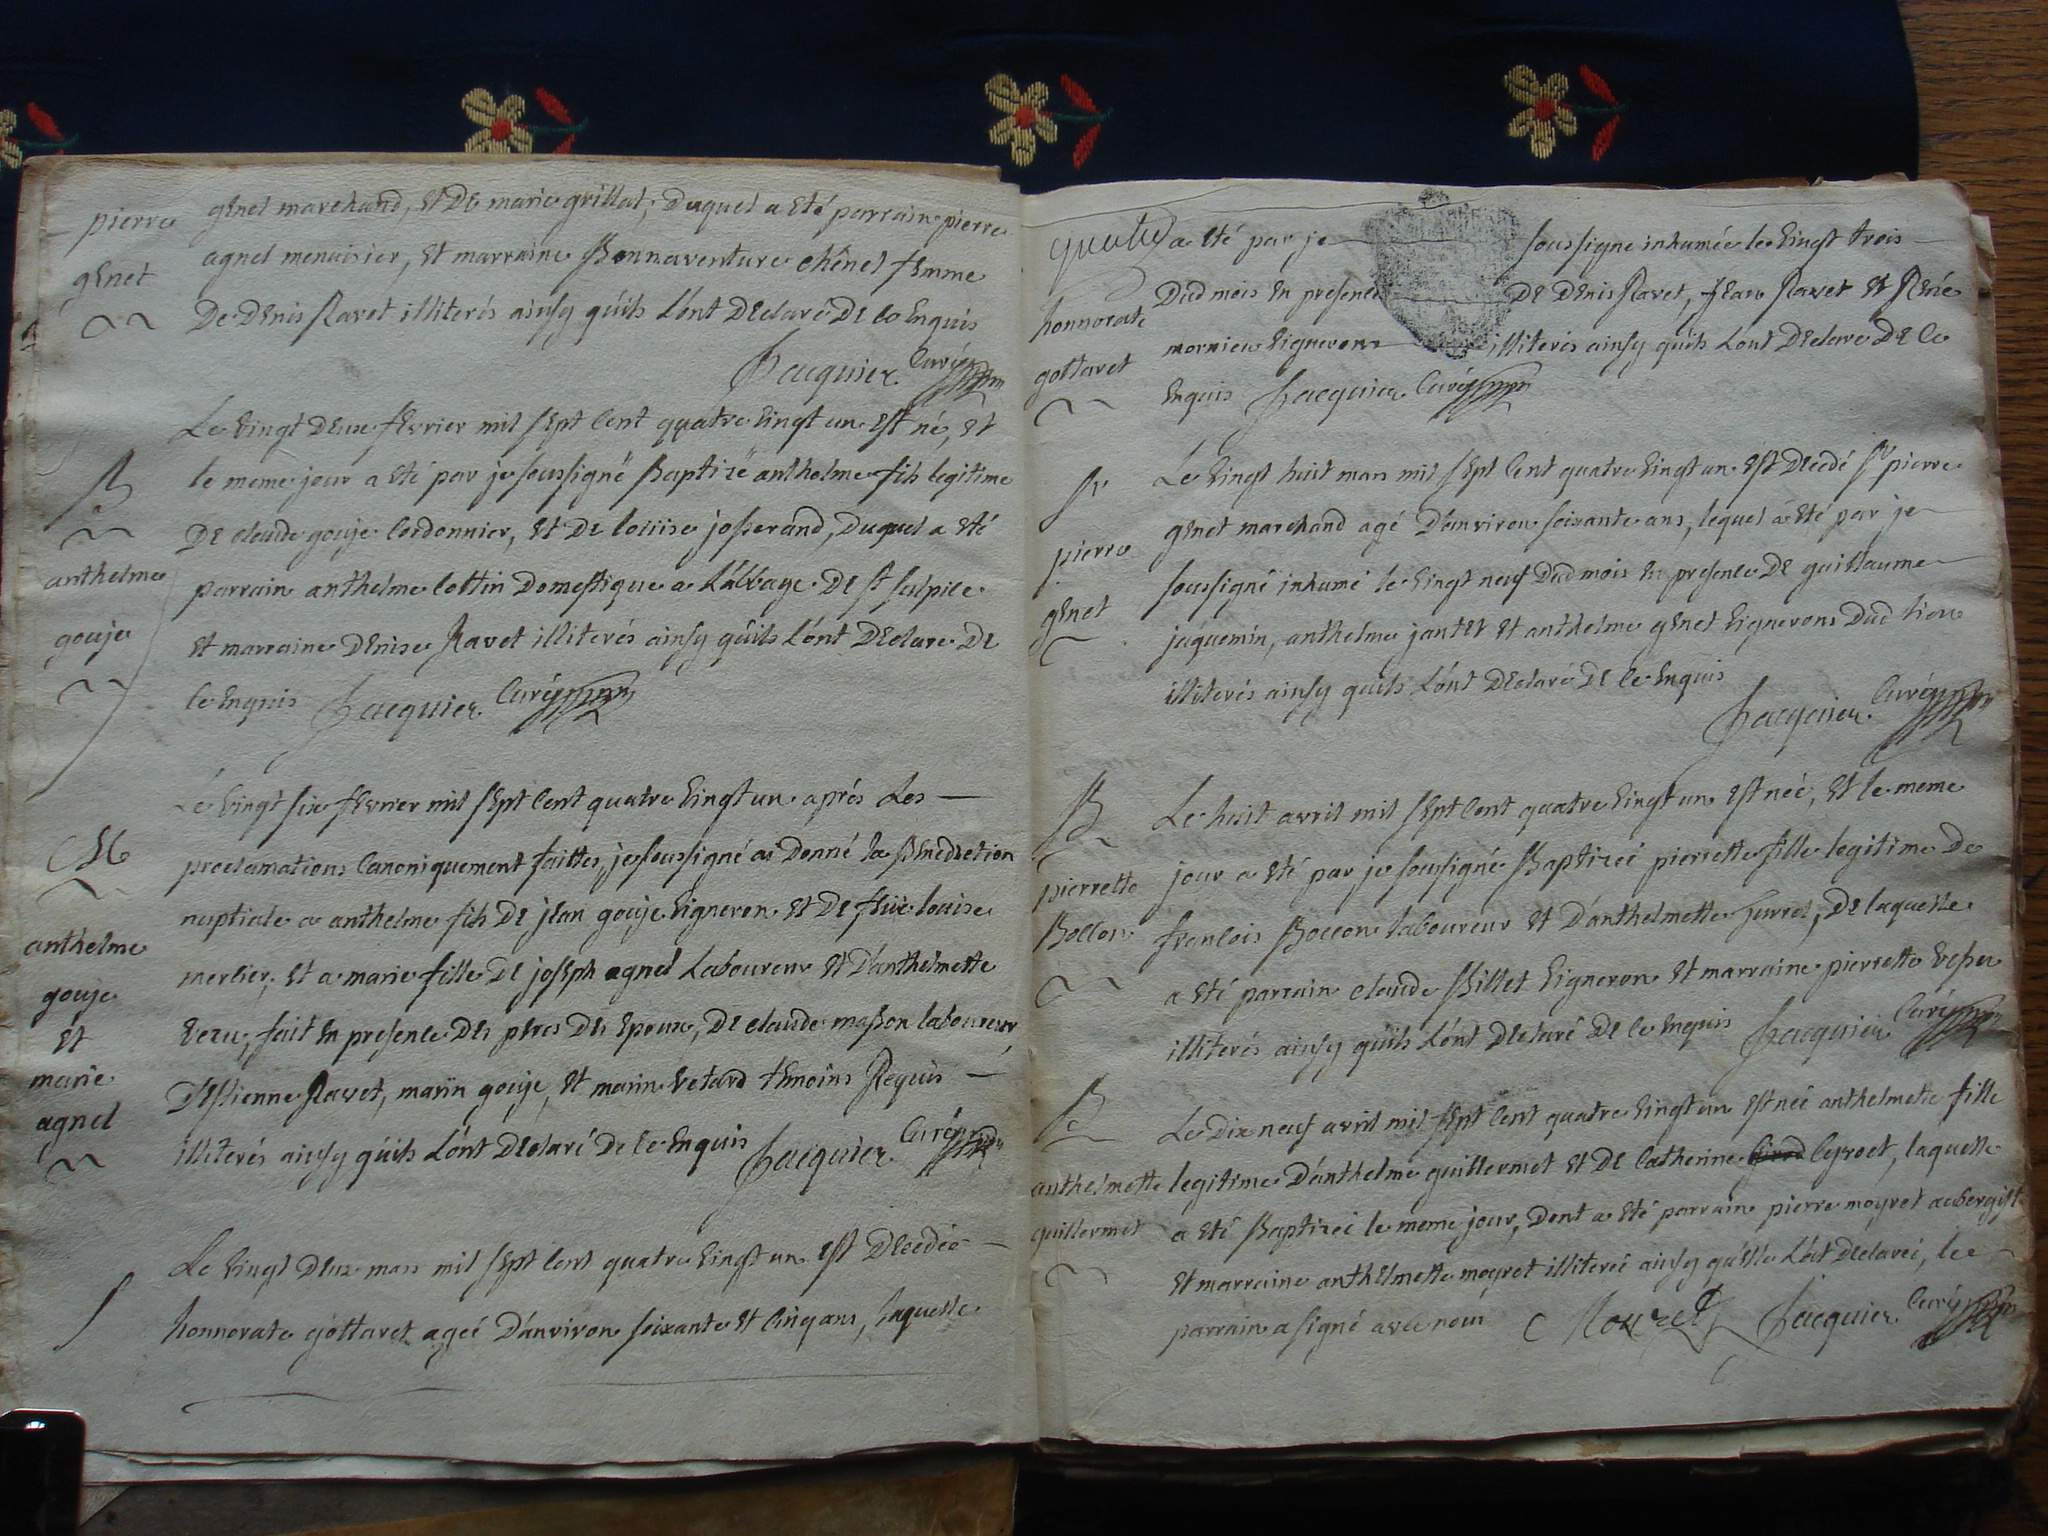 pierre
genet
genet marchand, et De marie grillat; Duquel a eté parrain pierre
agnel menuisier, et marraine Bonnaventure chênel femme
De Denis Ravet illiterés ainsy qúils L'ont Declaré De ce Enquis
Jacquier Curé
B
anthelme
gouje
Le vingt Deux fevrier mil sept Cent quatre vingt un Est né, et
le meme jour a eté par je soussigné Baptizé anthelme fils legitime
De claude gouje Cordonnier, et De louise josserand, Duquel a eté
parrain anthelme Cottin Domestique a L'abbaye De st sulpice
et marraine Denise Ravet illiterés ainsy qúils L'ont Declare De
Ce Enquis Jacquier Curé
M
anthelme
gouje
et
marie
agnel
Le vingt six fevrier mil sept Cent quatre vingt un aprés Les
proclamations Canoniquement faittes, je soussigné ai Donné la Benediction
nuptiale a anthelme fils De jean gouje vigneron et De feüe louise
merlier; et a marie fille De joseph agnel Laboureur et D'anthelmette
vezu; fait En presence Des peres Des Epoux, De claude masson laboureur,
D'Estienne Ravet, marin gouje, et marin vetard temoins Requis
illiterés ainsy qúils L'ont Declaré De Ce Enquis Jacquier Curé
S
Le vingt Deux mars mil sept Cent quatre vingt un Est Decedée
honnorate gottaret ageé D'anviron soixante et Cinq ans, Laquelle
honnorate
gottaret
a eté par je soussigne inhumée le vingt trois
Dud mois En presence De Denis Ravet, jean Ravet et René
mornieu vignerons illiterés ainsy qúils L'ont Declare De Ce
Enquis Jacquier Curé
Sr
pierre
genet
Le vingt huit mars mil sept Cent quatre vingt un Est Decedé Sr pierre
genet marchand agé D'anviron soixante ans, lequel a eté par je
soussigné inhumé le vingt neuf Dud mois En presence De guillaume
jaquemin, anthelme jantet et anthelme genet vignerons Dud lieu
illiterés ainsy qúils L'ont Declaré De Ce Enquis
Jacquier Curé
B
pierrette
Boccon
Le huit avril mil sept Cent quatre vingt un Est neé, et le meme
jour a eté par je soussigné Baptizeé pierrette fille legitime De
francois Boccon laboureur et D'anthelmette juvret, De laquelle
a eté parrain claude Billet vigneron et marraine pierrette vesu
illiterés ainsy qúils L'ont Declaré De Ce Enquis Jacquier Curé
B
anthelmette
guillermet
Le Dix neuf avril mil sept Cent quatre vingt un Est neé anthelmette fille
legitime D'anthelme guillermet et De Catherine Ceyroet, laquelle
a eté Baptizeé le meme jour, Dont a eté parrain pierre moyret aubergiste
et marraine anthelmette moyret illitereé ainsy qu'elle L'at Declareé, Le
parrain a signé avec nous Mouret Jacquier Curé